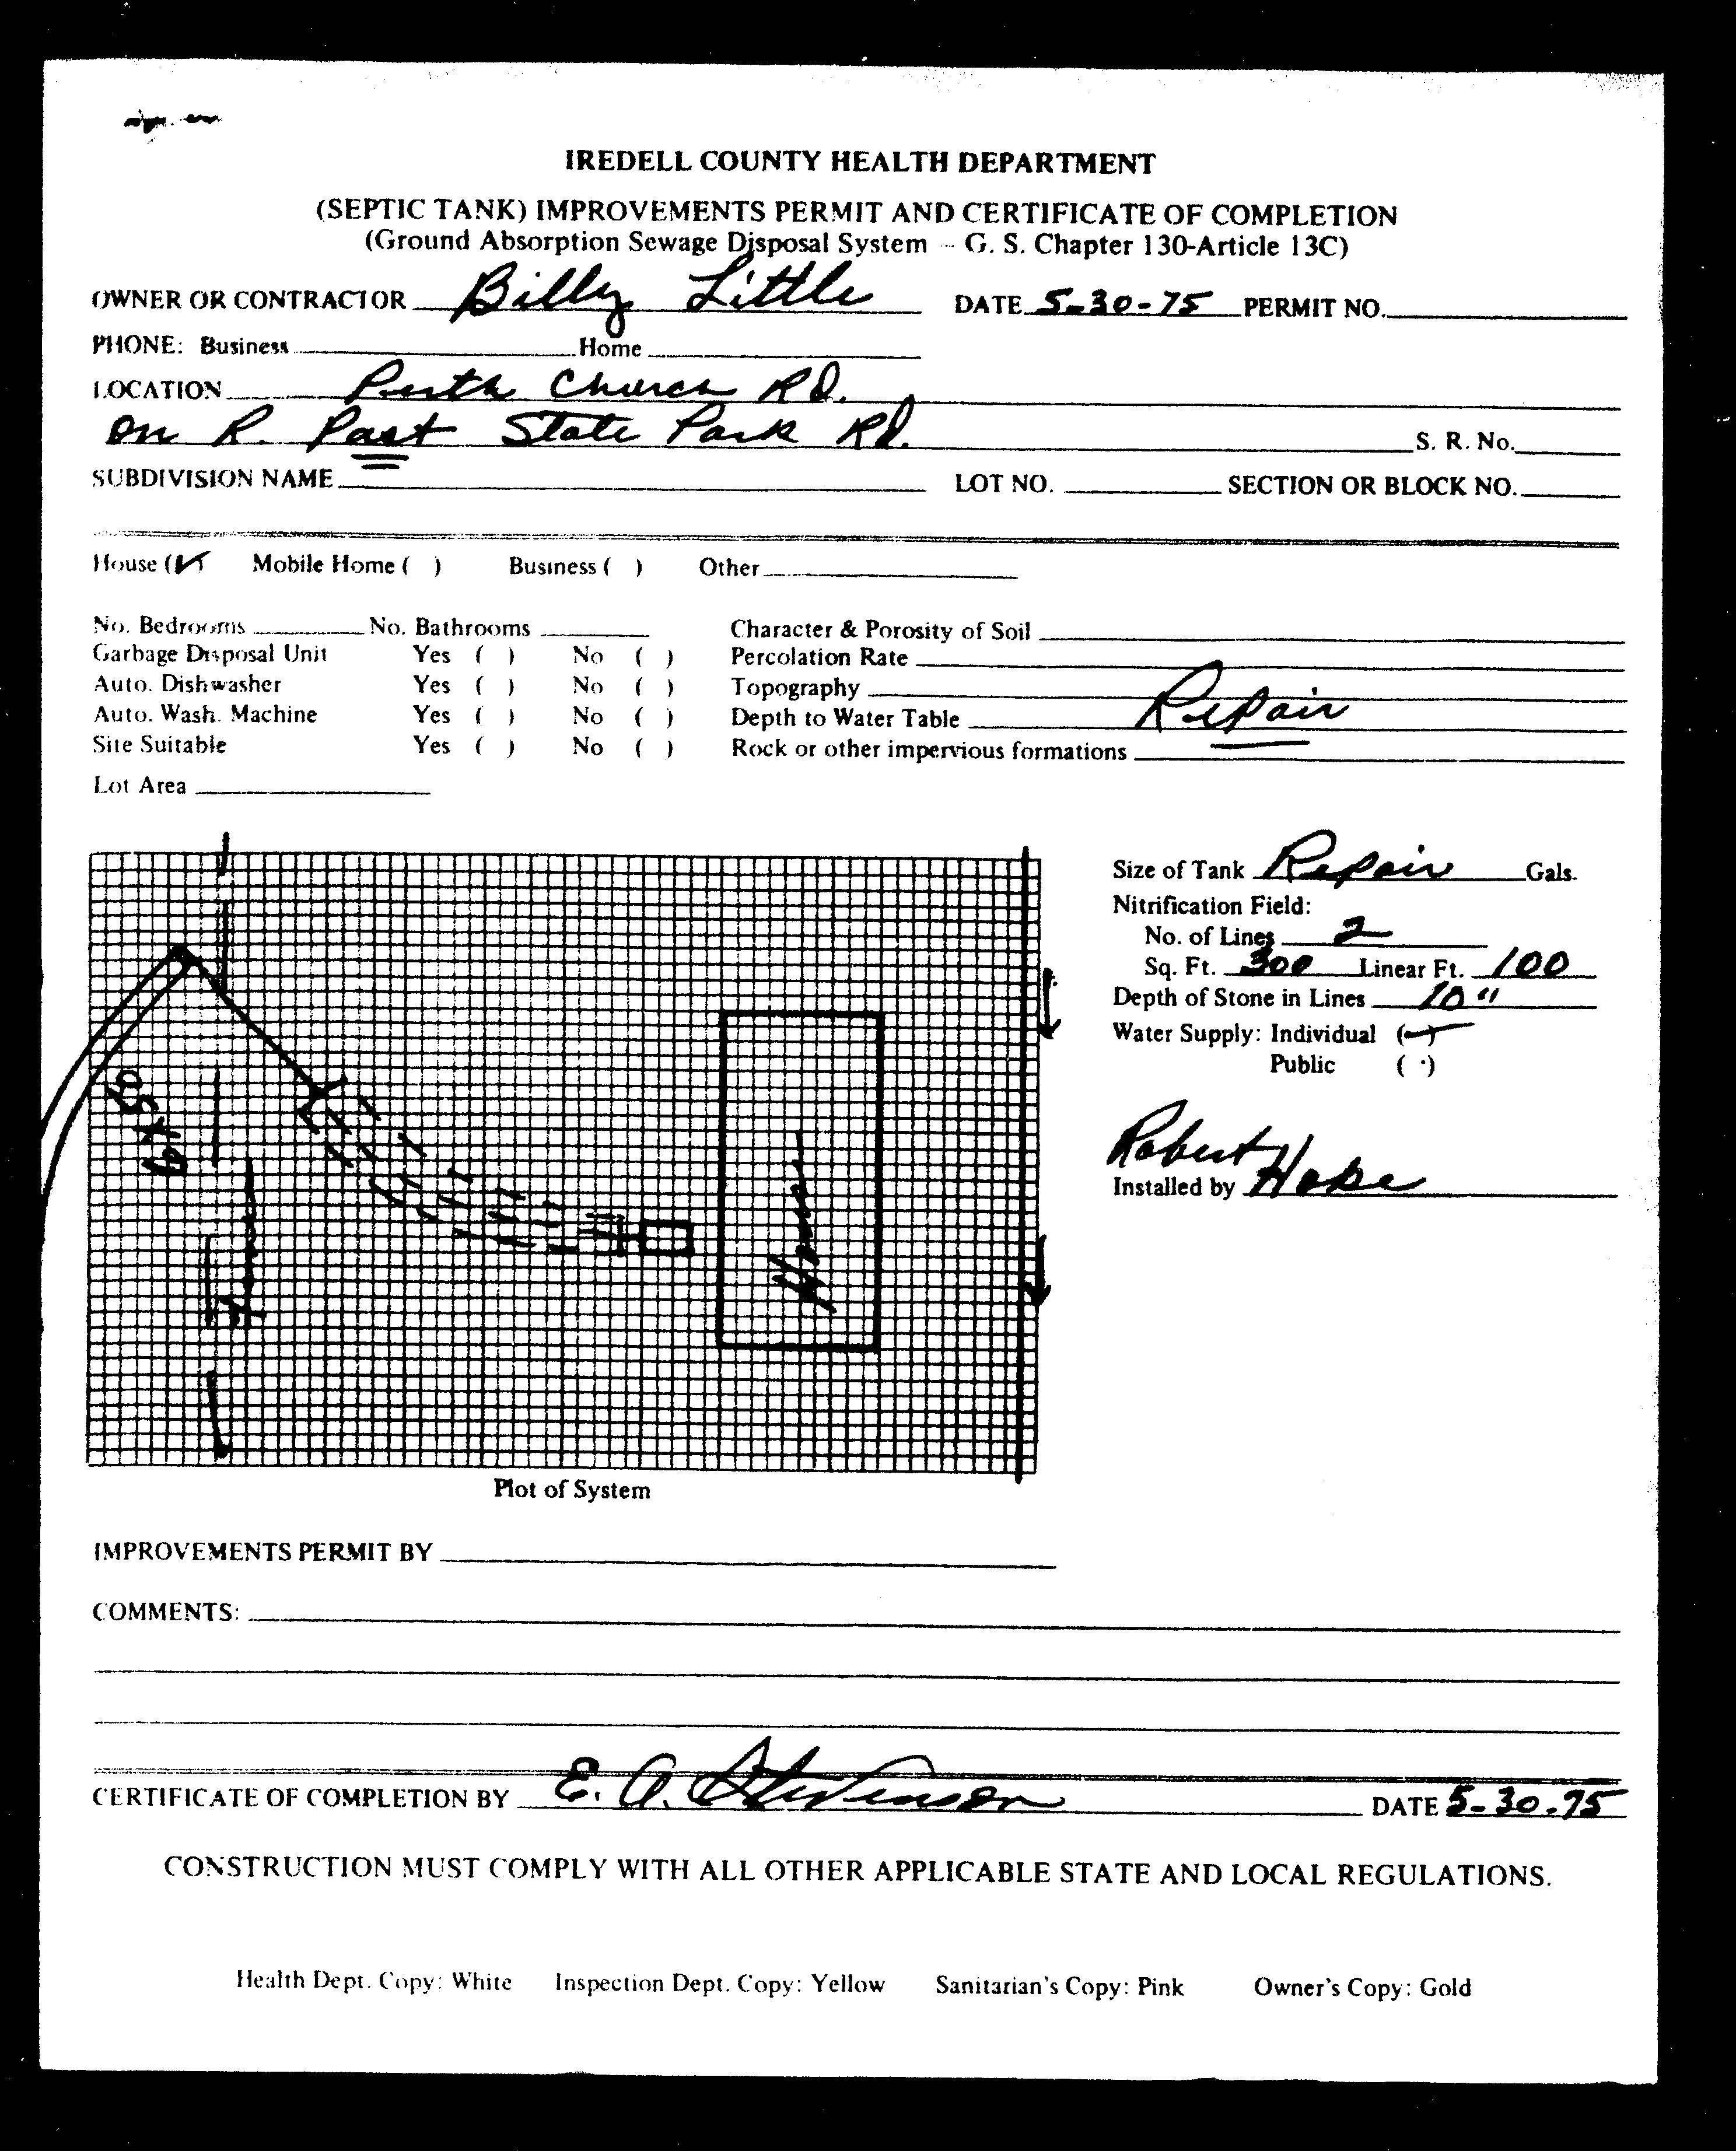 IREDELL COUNTY HEALTH DEPARTMENT
(SEPTIC TANK) IMPROVEMENTS PERMIT AND CERTIFICATE OF COMPLETION
(Ground Absorption Sewage Disposal System - G. S. Chapter 130-Article 13C)
OWNER OR CONTRACTOR Billy Little DATE 5-30-75 PERMIT NO.
PHONE: Business Home
LOCATION Perth Church Rd.
on R. Past State Park Rd. S. R. No.
SUBDIVISION NAME LOT NO. SECTION OR BLOCK NO.
House (✓) Mobile Home ( ) Business ( ) Other
No. Bedrooms No. Bathrooms Character & Porosity of Soil
Garbage Disposal Unit Yes ( ) No ( ) Percolation Rate
Auto. Dishwasher Yes ( ) No ( ) Topography
Auto. Wash. Machine Yes ( ) No ( ) Depth to Water Table Repair
Site Suitable Yes ( ) No ( ) Rock or other impervious formations
Lot Area
Size of Tank Repair Gals.
Nitrification Field:
No. of Lines 2
Sq. Ft. 300 Linear Ft. 100
Depth of Stone in Lines 10"
Water Supply: Individual (✓)
Public ( )
Robert
Installed by Hobe
House
Plot of System
IMPROVEMENTS PERMIT BY
COMMENTS:
CERTIFICATE OF COMPLETION BY E. A. Stevenson DATE 5-30-75
CONSTRUCTION MUST COMPLY WITH ALL OTHER APPLICABLE STATE AND LOCAL REGULATIONS.
Health Dept. Copy: White Inspection Dept. Copy: Yellow Sanitarian's Copy: Pink Owner's Copy: Gold